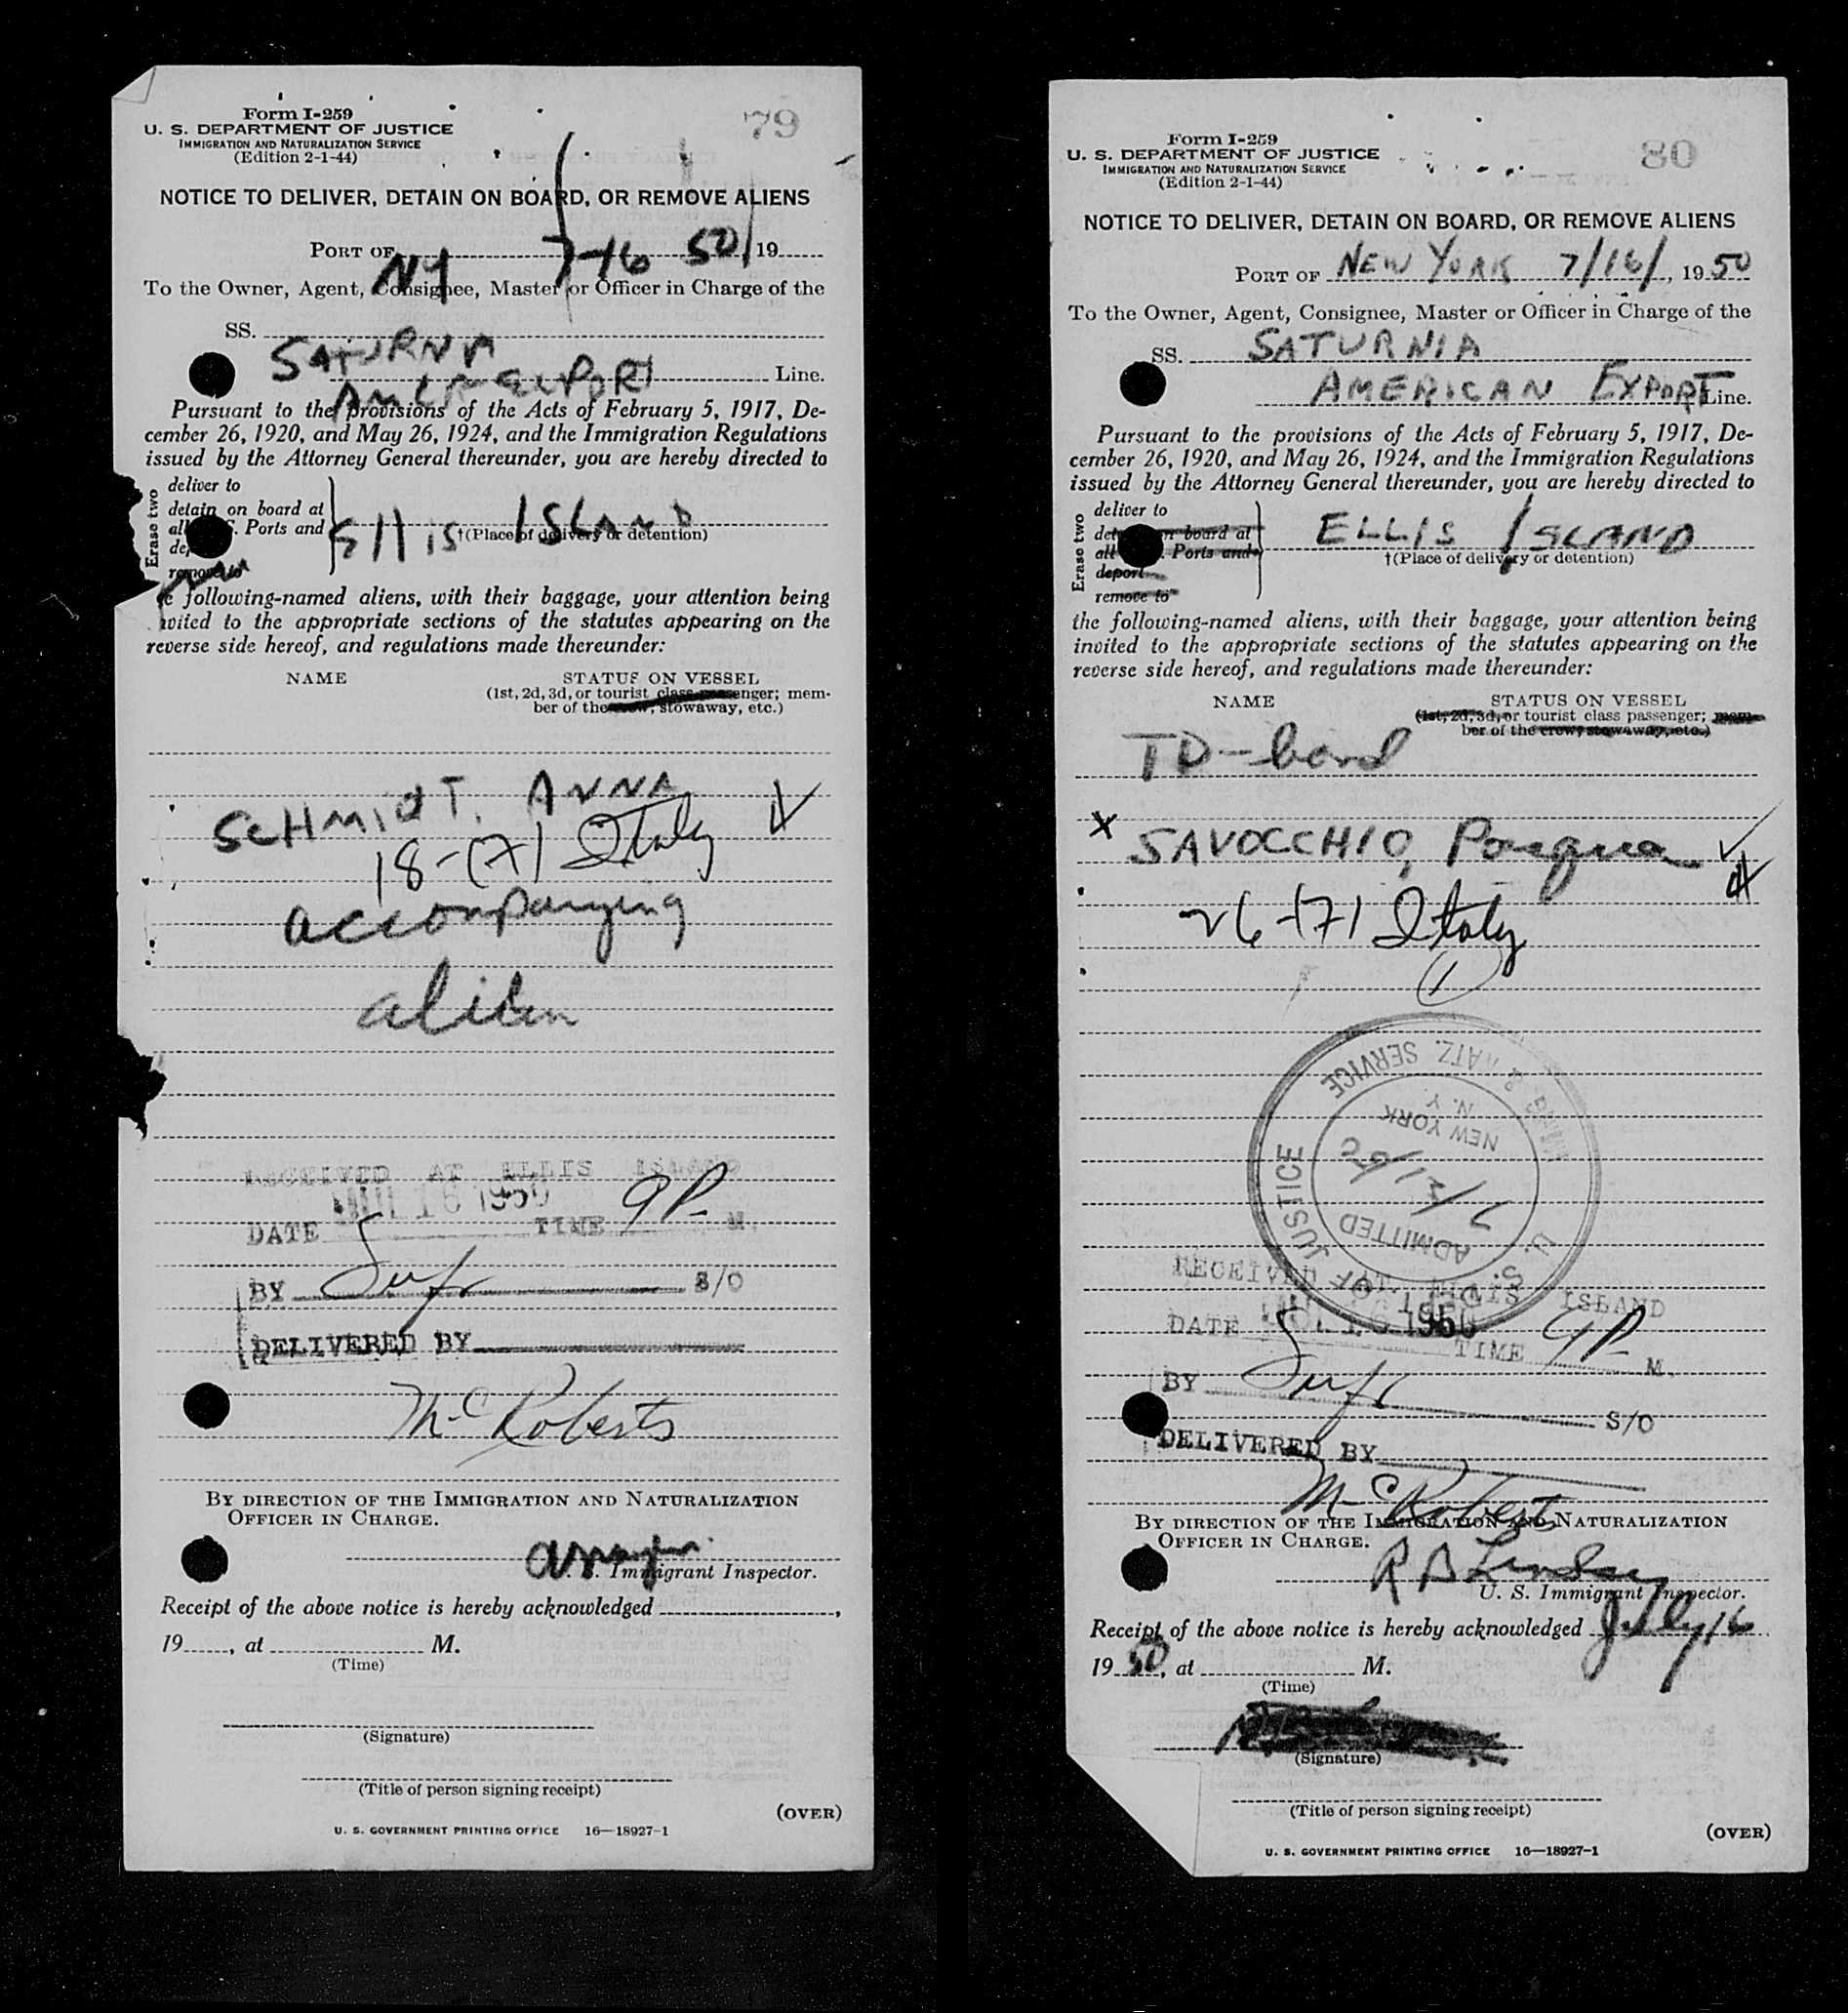 Form I-259
U. S. DEPARTMENT OF JUSTICE
IMMIGRATION AND NATURALIZATION SERVICE
(Edition 2-1-44)
79
NOTICE TO DELIVER, DETAIN ON BOARD, OR REMOVE ALIENS
PORT OF NY 7-16 50 19
To the Owner, Agent, Consignee, Master or Officer in Charge of the
SS. SATURNA
Line.
Pursuant to the provisions of the Acts of February 5, 1917, De-
cember 26, 1920, and May 26, 1924, and the Immigration Regulations
issued by the Attorney General thereunder, you are hereby directed to
Erase two
deliver to
detain on board at
Ports and
remove to
Ellis ISLAND
†(Place of delivery or detention)
following-named aliens, with their baggage, your attention being
to the appropriate sections of the statutes appearing on the
reverse side hereof, and regulations made thereunder:
NAME STATUS ON VESSEL
(1st, 2d, 3d, or tourist class passenger; mem-
ber of the crew, stowaway, etc.)
SCHMIDT, ANNA
18-(7) Italy
accompanying
alien
RECEIVED AT ELLIS ISLAND
DATE JUL 16 1950 TIME 9P M.
BY S/O
DELIVERED BY
McRoberts
BY DIRECTION OF THE IMMIGRATION AND NATURALIZATION
OFFICER IN CHARGE.
Immigrant Inspector.
Receipt of the above notice is hereby acknowledged ,
19 , at M.
(Time)
(Signature)
(Title of person signing receipt)
(OVER)
U. S. GOVERNMENT PRINTING OFFICE 16—18927-1
Form I-259
U. S. DEPARTMENT OF JUSTICE
IMMIGRATION AND NATURALIZATION SERVICE
(Edition 2-1-44)
80
NOTICE TO DELIVER, DETAIN ON BOARD, OR REMOVE ALIENS
PORT OF NEW YORK 7/16/, 1950
To the Owner, Agent, Consignee, Master or Officer in Charge of the
SS. SATURNIA
AMERICAN EXPORT Line.
Pursuant to the provisions of the Acts of February 5, 1917, De-
cember 26, 1920, and May 26, 1924, and the Immigration Regulations
issued by the Attorney General thereunder, you are hereby directed to
Erase two
deliver to
on board at
all Ports and
deport
remove to
ELLIS ISLAND
†(Place of delivery or detention)
the following-named aliens, with their baggage, your attention being
invited to the appropriate sections of the statutes appearing on the
reverse side hereof, and regulations made thereunder:
NAME STATUS ON VESSEL
(1st, 2d, 3d, or tourist class passenger; mem-
ber of the crew, stowaway, etc.)
TD-bond
X SAVOCCHIO, Pasqua
26-(7) Italy
1
NATZ. SERVICE
NEW YORK
N. Y.
ADMITTED
U. S. DEPT. OF JUSTICE
RECEIVED AT ELLIS ISLAND
DATE JUL 16 1950 TIME 9P M.
BY S/O
DELIVERED BY
McRoberts
BY DIRECTION OF THE IMMIGRATION AND NATURALIZATION
OFFICER IN CHARGE.
R B Lindsay
U. S. Immigrant Inspector.
Receipt of the above notice is hereby acknowledged July 16
1950, at M.
(Time)
(Signature)
(Title of person signing receipt)
(OVER)
U. S. GOVERNMENT PRINTING OFFICE 16—18927-1